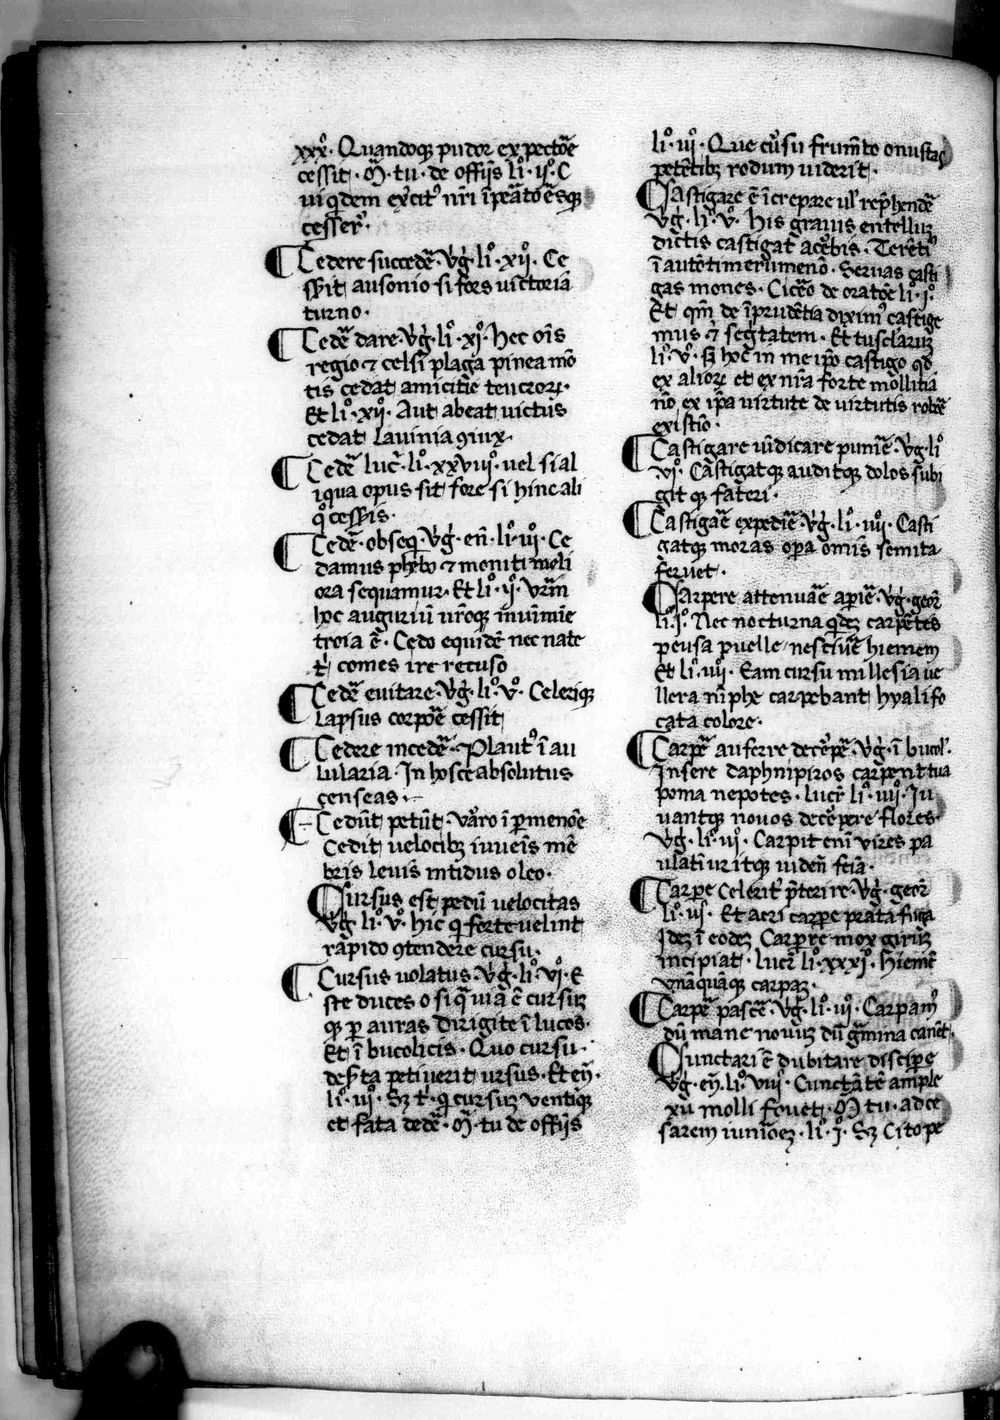 xxxº. Quandoq; pudor ex pectōe
cessit. M̄. tu. de offijs li. ijº. C
ui qdem exc̄it' nr̄i īpēatōesq;
cesser̄.
¶ Cedere succedē. v̄g. li. xijº. Ce
ssit ausonio si fors victoria
turno.
¶ Cedē dare. v̄g. liº. xjº. Hec oīs
regio & celsi plaga pinea mō
tis cedat amicitie teucror̄.
Et liº. xijº. Aut abeat victus
cedat lauinia ꝯiux.
¶ Cedē luc̄. liº. xxviiiº. uel si al
iqua opus sit fore si hinc ali
qº cessis.
¶ Cedē. obseq̄. v̄g. en̄. liº. iijº. Ce
damus phebo & moniti meli
ora sequamur. Et liº. ijº. vr̄m
hoc auguriū vr̄oq; in numine
troia ē. Cedo equidē nec nate
t̄ comes ire recuso
¶ Cedē euitare. v̄g. liº. vº. Celeriq;
lapsus corpōe cessit
¶ Cedere incedē. Plaut' ī au
lularia. In hosce absolutus
censeas.
¶ Cedūt petūt. vāro ī parmenōe
Cedit uelocib; iuueīs mē
bris leuis nitidus oleo.
Cursus est pedū velocitas
v̄g. liº. vº. hic q̄ forte velint
rapido ꝯtendere cursu.
¶ Cursus uolatus. v̄g. liº. vjº. E
ste duces o si q̄ uia ē cursuz
q; ꝑ auras dirigite ī lucos.
Et ī bucolicis. Quo cursu.
desta petiuerit ursus. Et en̄.
liº. iijº. Sz t̄. q̄ cursuz ventiq;
et fata dedē. M̄. tu de offijs
liº. iijº. Que cūsu frumēto onustas
petētib; rodum uiderit.
Castigare ē īcrepare ul' rep̄hendē
v̄g. liº. vº. His grauis entelluz
dictis castigat acēbis. Terēti'
ī autōtimerumenō. Seruas casti
gas mones. Cicēo de oratōe liº. jº.
Et qm̄ de īprudētia dixim' castige
mus & segītatem. Et tusc'laruz
liº. vº. S; hoc̄ in me ip̄o castigo qd̄
ex alior̄ et ex nr̄a forte mollitia
nō ex ip̄a uirtute de uirtutis robōe
existīo.
¶ Castigare uīdicare punīe. v̄g. liº
vjº. Castigatq; auditq; dolos subi
git q; fateri.
¶ Castigāe expedīe. v̄g. liº. iiijº. Casti
gatq; moras opa omīs semita
feruet.
Carpere attenuāe apīe. v̄g. geor̄
liº. jº. Nec nocturna qdez carpētes
pensa puelle nesciuēe hiemem
Et li. iiijº. Eam cursu millesia ue
llera nīphe carpebant hyali fo
cata colore.
¶ Carpē auferre decēpē. v̄g. ī bucol'.
Insere daphni piros carpent tua
poma nepotes. lucr̄ liº. iiijº. Iu
uantq; nouos decēpere flores.
v̄g. liº. iijº. Carpit enī vires pa
ulatī uritq; uiden̄ feīa.
¶ Carpe celerit' p̄terire. v̄g. geor̄
liº. iijº. Et acri carpe prata fuga
Idez ī eodez Carpere mox giruz
incipiat. lucr̄ liº. xxxjº. Hiemē
vnā quāq; carpaz.
¶ Carpē pascē. v̄g. liº. iijº. Carpam'
dū mane nouuz dū gm̄ina canēt.
Cunctari ē dubitare discipe
v̄g. en̄. liº. viijº. Cunctātē ample
xu molli fouet. M̄. tu. ad ce
sarem iuniōez. liº. jº. Sz cito pe